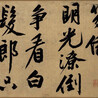 明光潦倒
争看白
髮郎只